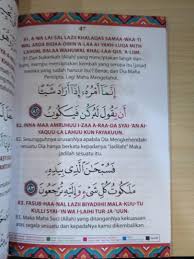 41
81. A WA LAI-SAL LADZI KHALAQAS SAMAA-WAA-TI
WAL ARDA BIQAA-DIRIN 'A-LAA AI YAKH-LUQA MITH
81 Dan bukankah (Allah) yang menciptakan langit dan bumi,
mampu menciptakan kembali yang
sudah hancur itu)? Benar, dan Dia Maha
Pencipta, Maha Mengetahui.
إِنَّمَا أَمْرُهُ إِذَا أَرَادَ شَيْئًا
أَن يَقُولَ لَهُ كُن فَيَكُونُ
82. INNA-MAA AMRUHUU I-DZAA A-RAA-DA SYAI-'AN AI-
YAQUU-LA LAHUU KUN FAYAKUUN.
82. Sesungguhnya Dia Menghendaki
sesuatu Dia hanya berkata kepadanya, "Jadilah!" Maka
jadilah sesuatu itu.
فَسُبْحَانَ الَّذِي بِيَدِهِ
مَلَكُوتُ كُلِّ شَيْءٍ وَإِلَيْهِ تُرْجَعُونَ
83. FASUB-HAA-NAL LADZI BIYADIHII MALA-KUU-TU
KULLI SYAI-'IN WA I-LAIHI TUR-JA-'UUN.
83. Maka Maha Suci (Allah) yang ditangan-Nya kekuasaan
atas segala sesuatu dan kepada-Nya kamu dikembalikan.